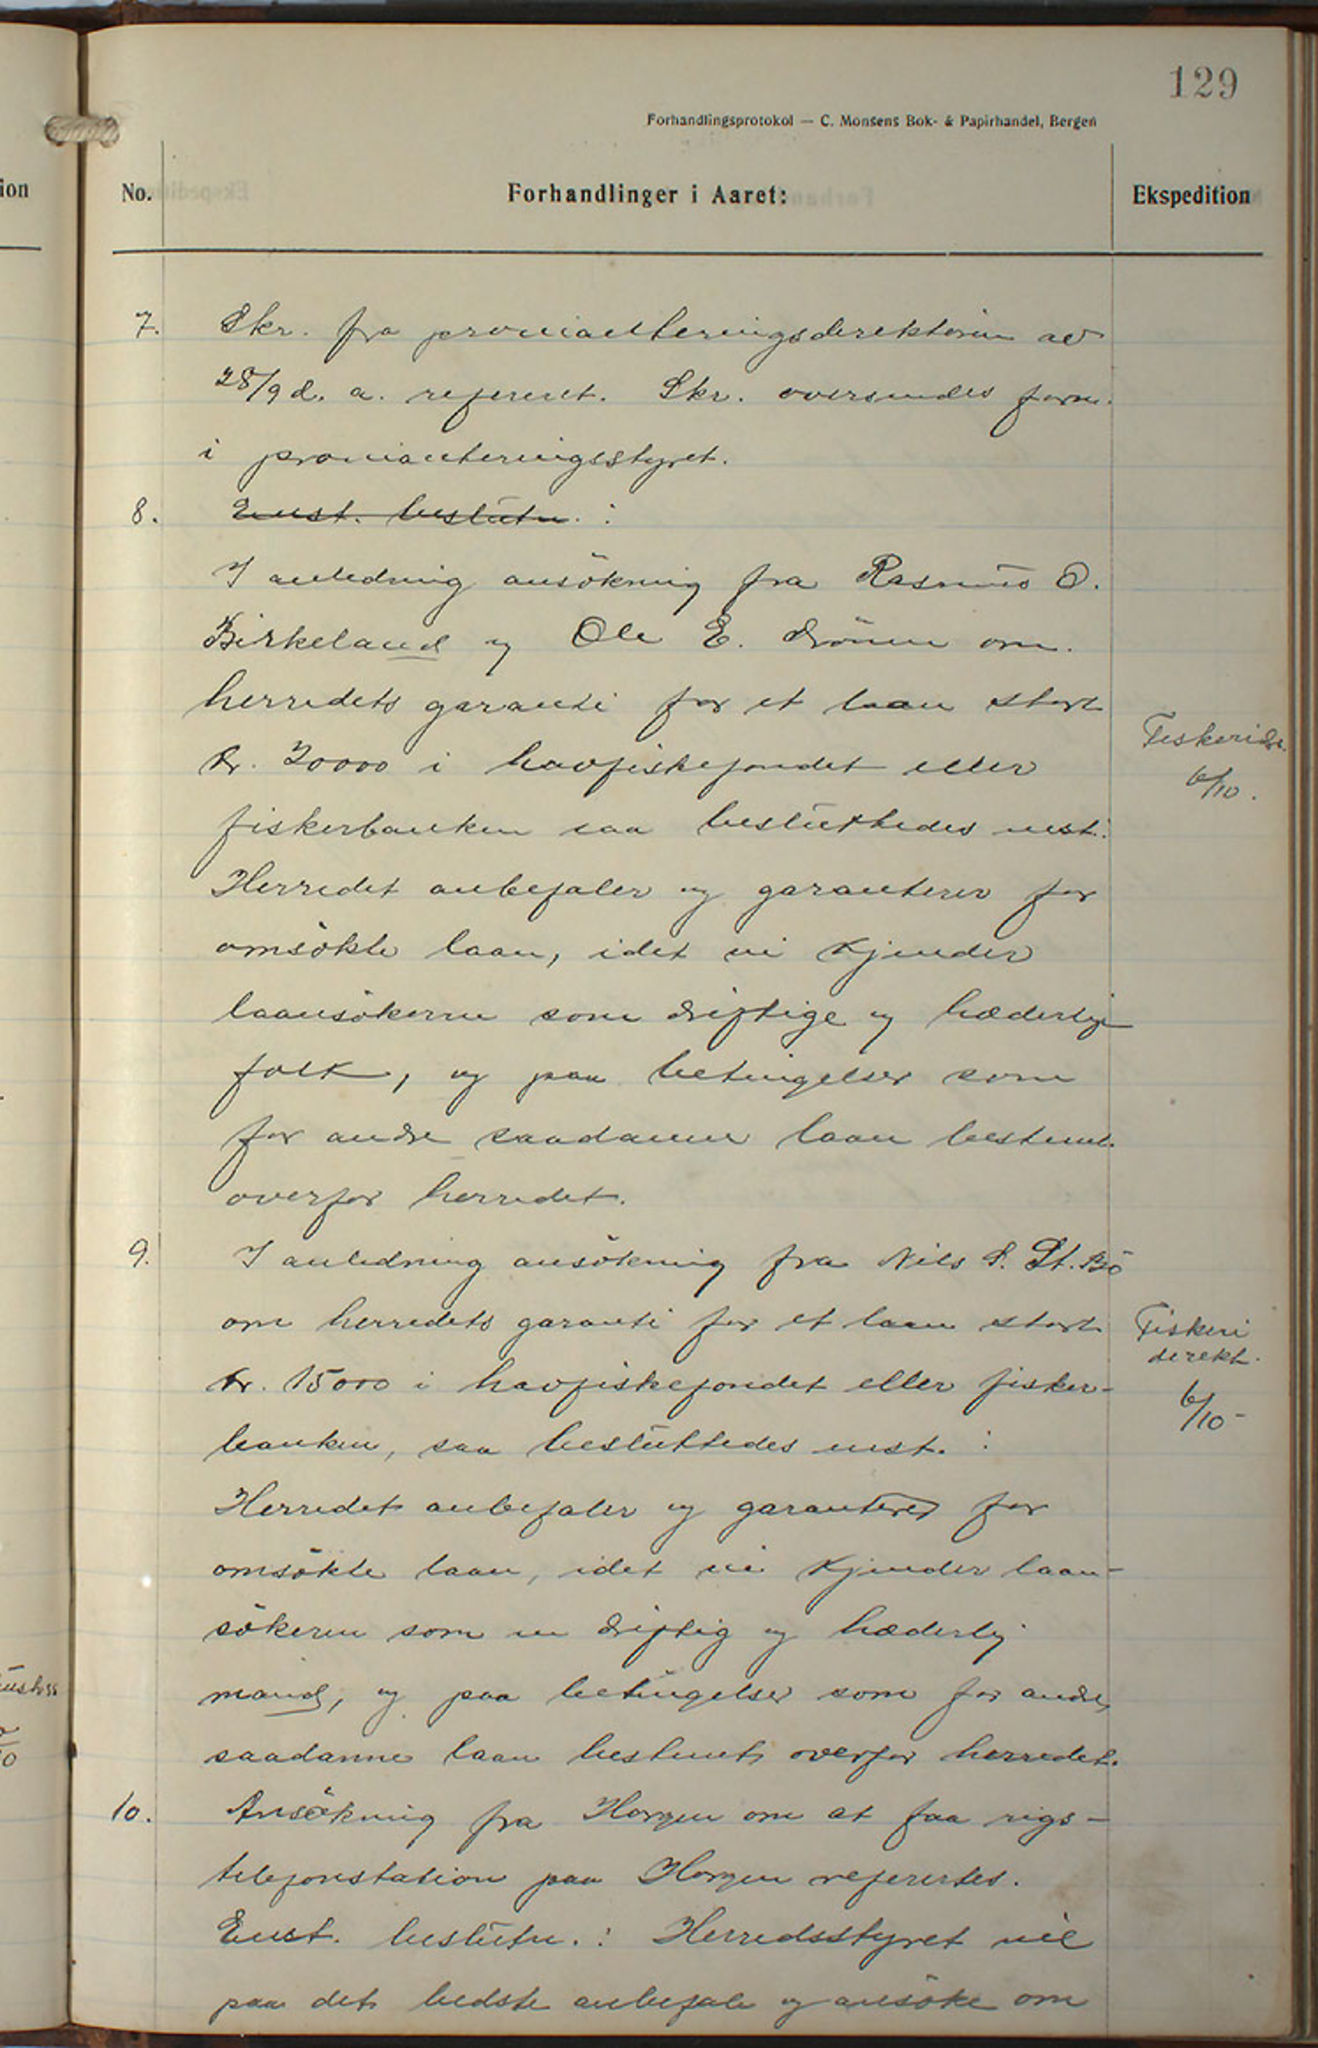 129
Forhandlingsprotokol — C. Monsens Bok- & Papirhandel, Bergen
ion
No.
Forhandlinger i Aaret:
Ekspedition
7. Skr. fra provianteringsdirektören av
28/9 d. a. referert. Skr. oversendes form.
i provianteringsstyret.
8. Enst. beslutn. :
I anledning ansökning fra Rasmus O.
Birkeland og Ole E. Drönen om
herredets garanti for et laan stort
kr. 20000 i havfiskefondet eller
fiskerbanken saa besluttedes enst.:
Herredet anbefaler og garanterer for
omsökte laan, idet vi kjender
laansökerne som driftige og hæderlige
folk, og paa betingelser som
for andre saadanne laan bestemt
overfor herredet.
Fiskeridir.
6/10.
9. I anledning ansökning fra Nils S. St. Bö
om herredets garanti for et laan stort
kr. 15000 i havfiskefondet eller fisker-
banken, saa besluttedes enst. :
Herredet anbefaler og garanterer for
omsökte laan, idet vi kjender laan-
sökeren som en driftig og hæderlig
mand, og paa betingelser som for andre
saadanne laan bestemt overfor herredet.
Fiskeri
direkt.
6/10-
10. Ansökning fra Horgen om at faa rigs-
telefonstation paa Horgen referertes.
Enst. beslutn. : Herredsstyret vil
paa det bedste anbefale og ansöke om